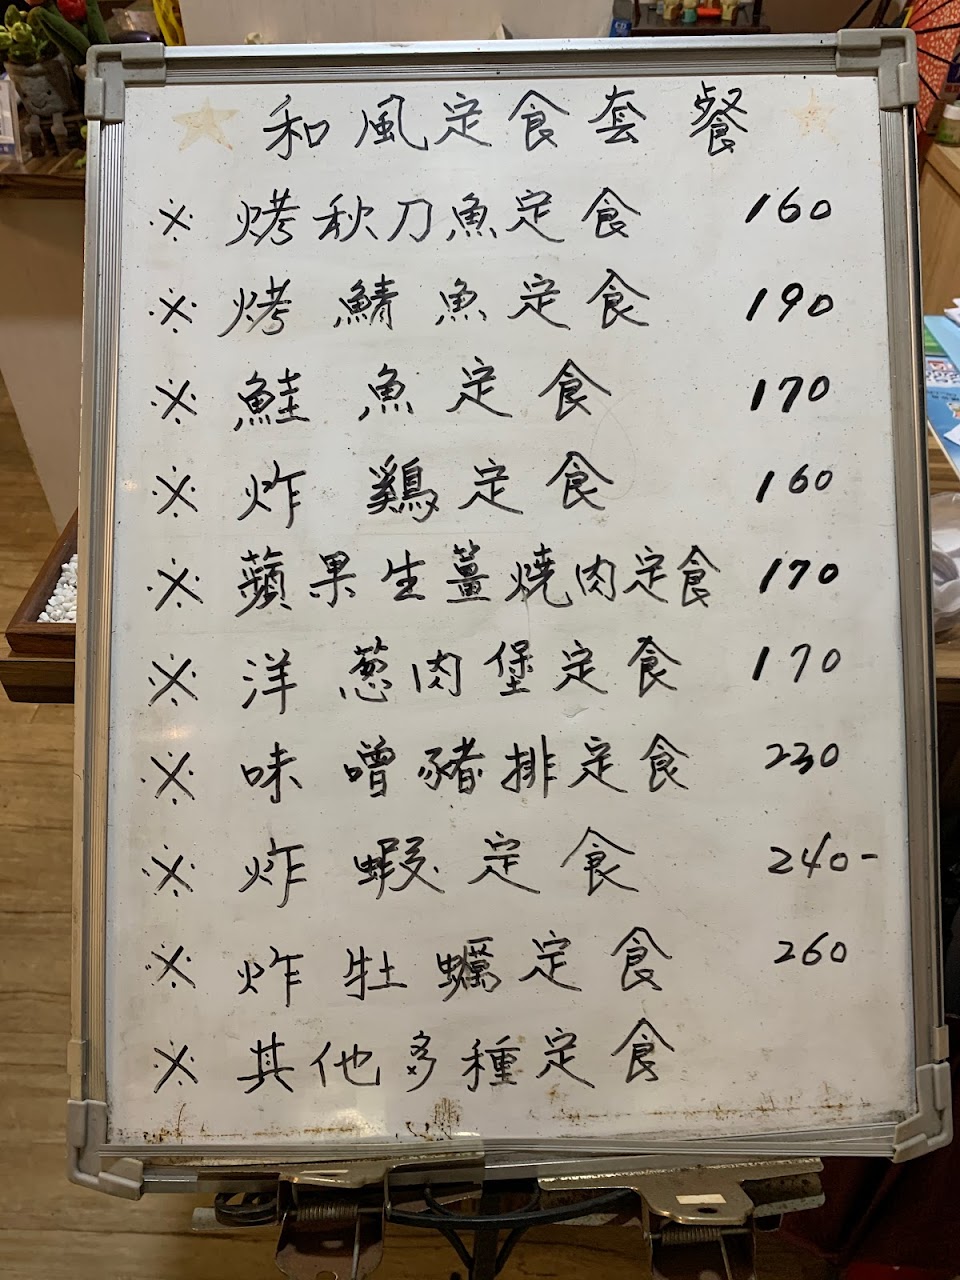 和風定食套餐
※ 烤秋刀魚定食 160
※ 烤鯖魚定食 190
※ 鮭魚定食 170
※ 炸鷄定食 160
※ 蘋果生薑燒肉定食 170
※ 洋葱肉堡定食 170
※ 味噌豬排定食 230
※ 炸蝦定食 240-
※ 炸牡蠣定食 260
※ 其他多種定食